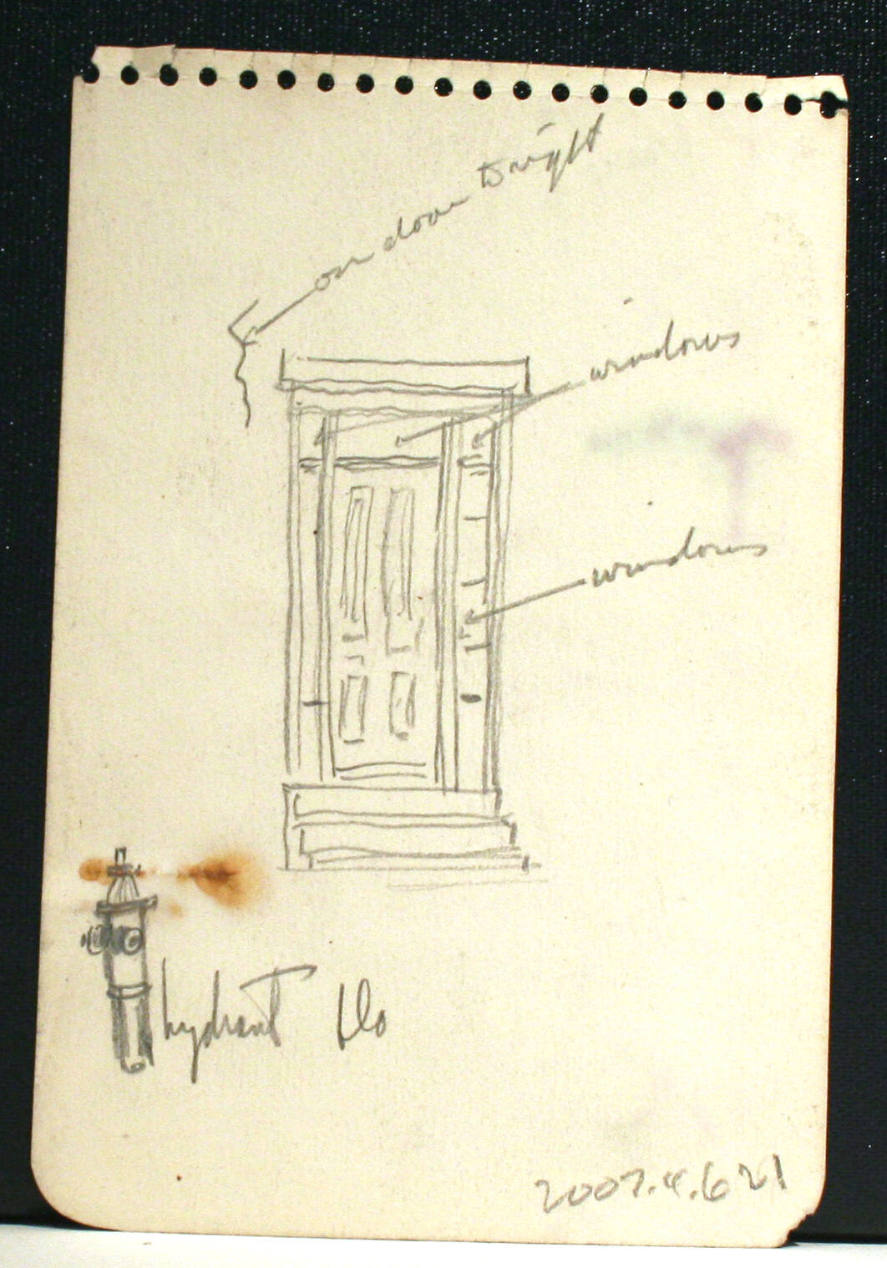 on door to right
windows
windows
hydrant
2007.4.621